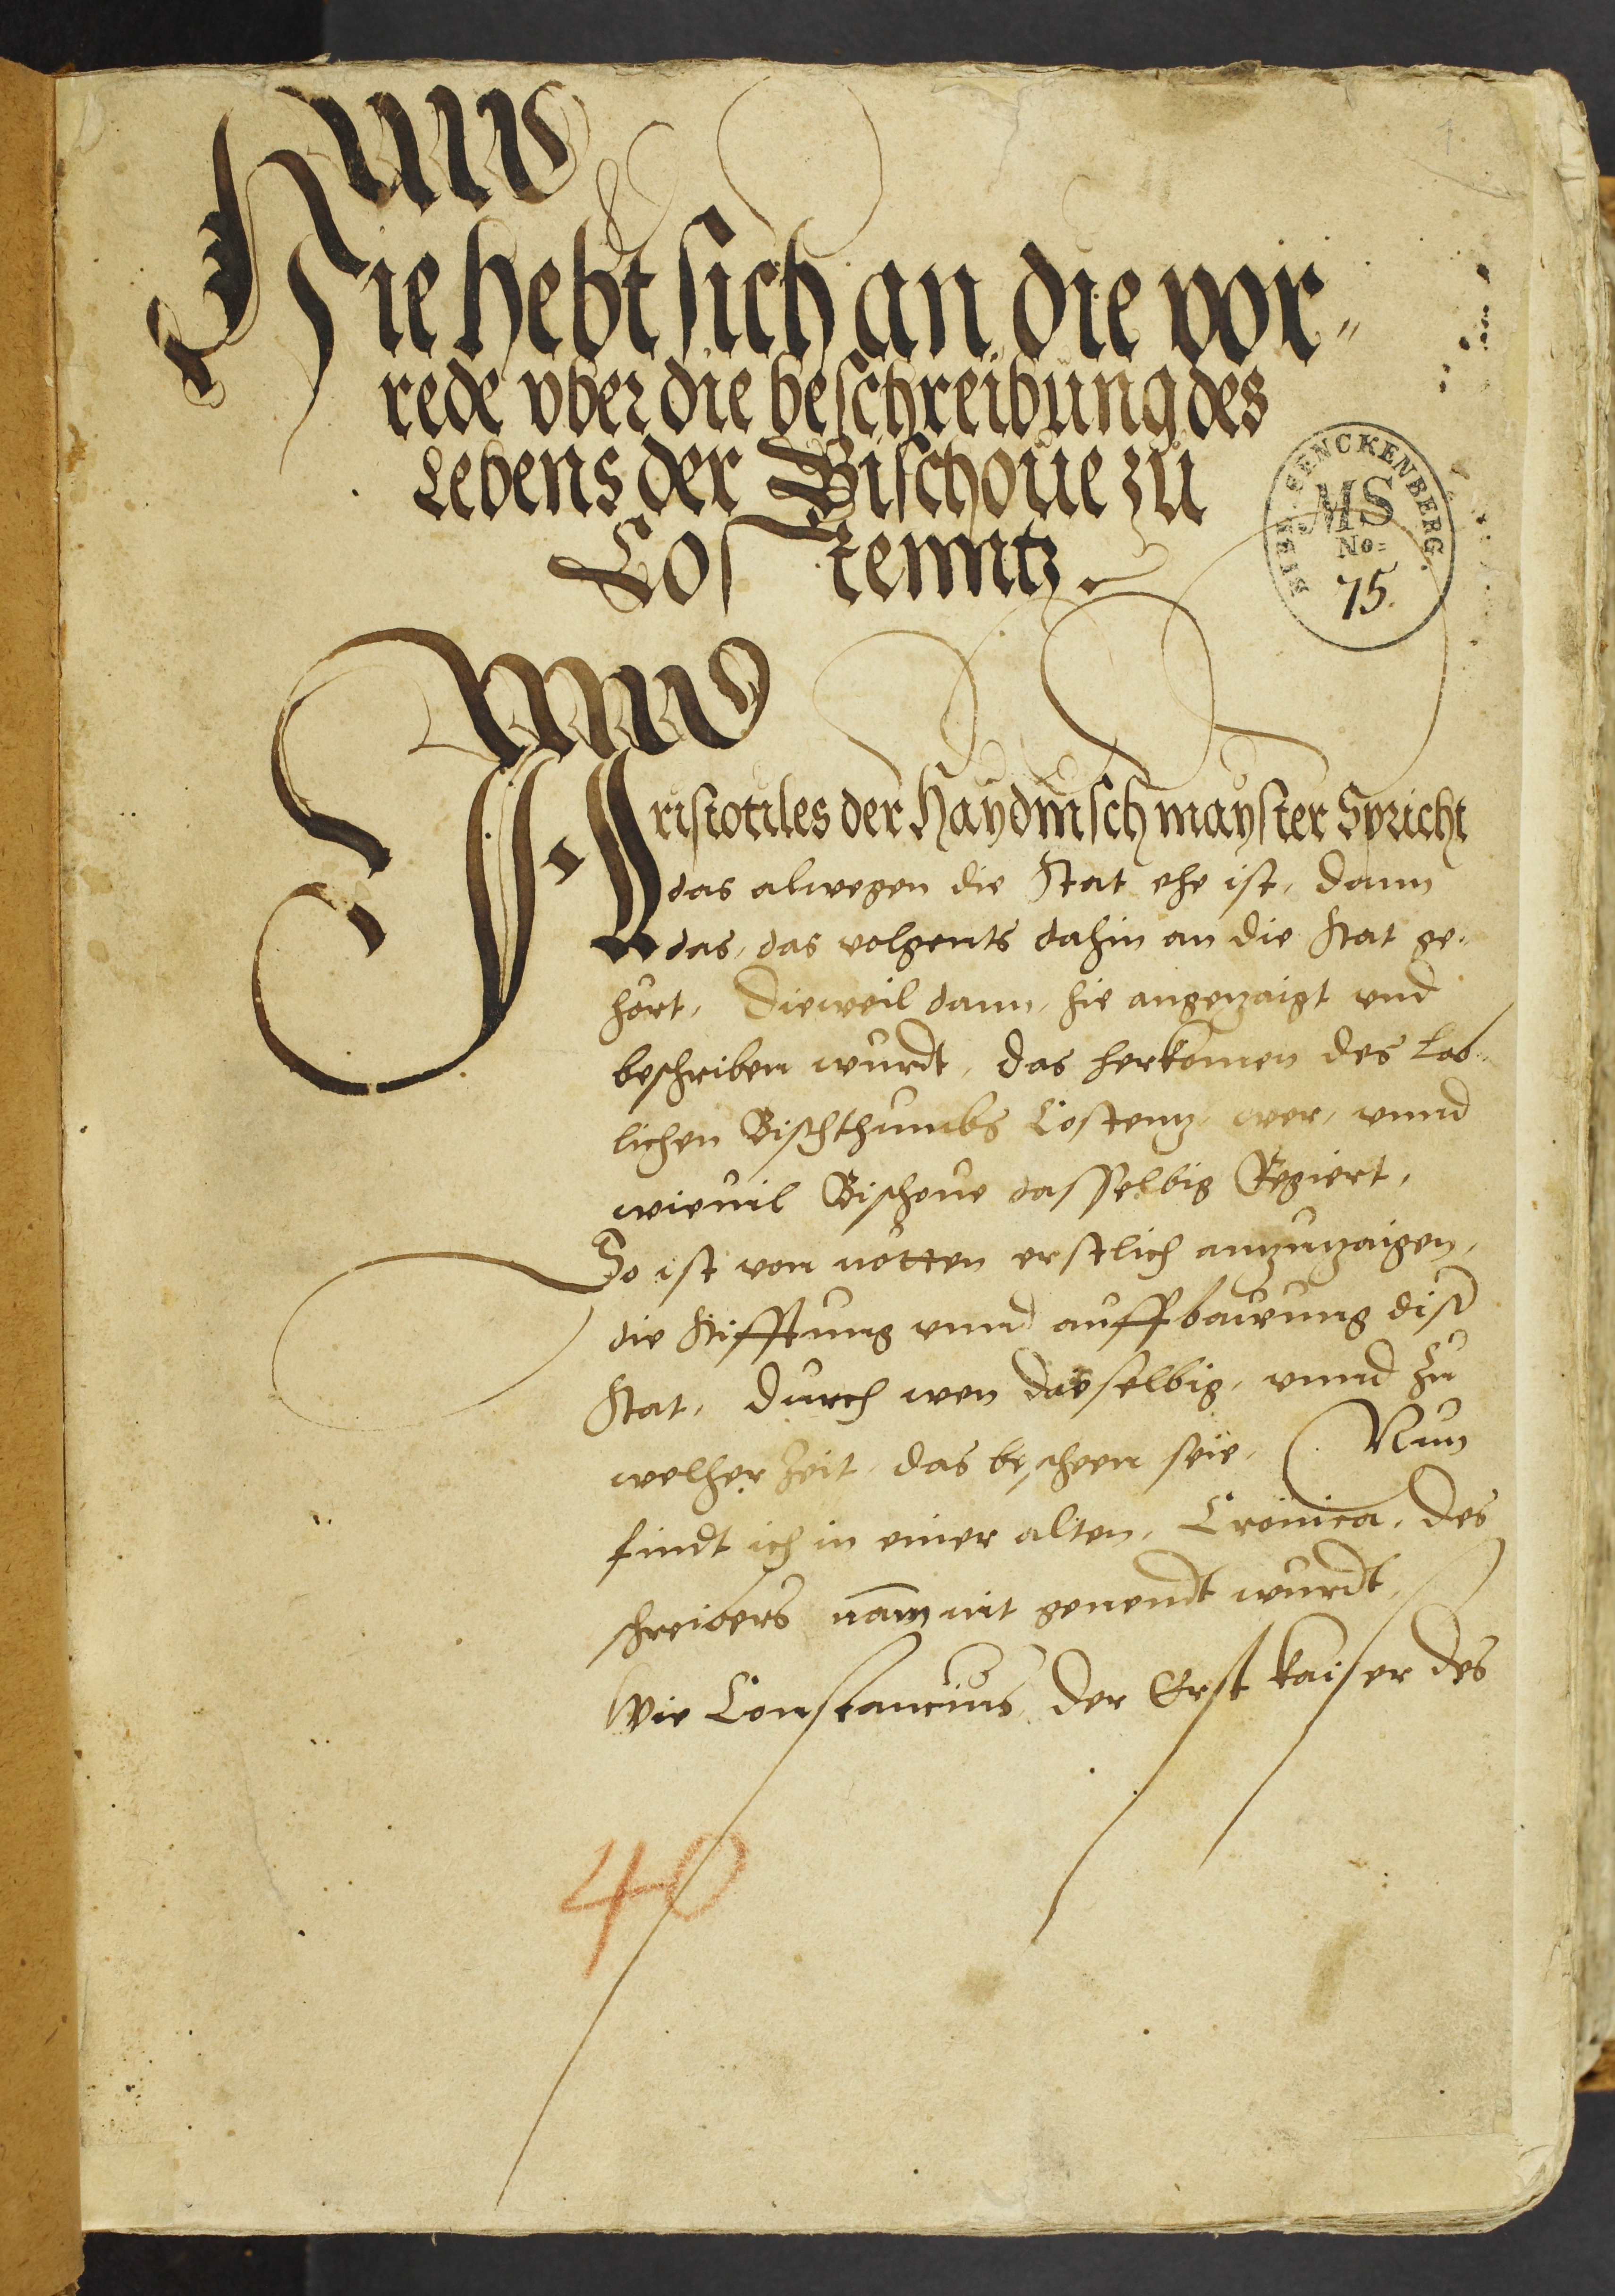 1.
Hie hebt sich an die vor⸗
rede vber die beschreibung des
Lebens der Bischoue zu
Costenntz.
BIBL. SENCKENBERG.
MS
No=
75.
Aristotiles der Haydnisch mayster Spricht
das alwegen die Stat ehe ist, dann
das, das volgents dahin an die Stat ge⸗
hört, Dieweil dann, hie angezaigt vnd
beschriben wurdt, das herkomen des lob⸗
lichen Bischthumbs Costentz, wer, vnnd
wieuil Bischoue dasselbig Regiert,
So ist von nötten erstlich anzuzaigen,
die Stifftung vnnd auffbawung diser
Stat, durch wen dasselbig, vnnd zu
welher Zeit, das bescheen seie, Nun
findt ich in einer alten, Cronica, des
schreibers nam nit genendt wurdt,
Wie Constancius, der Erst kaiser des
40